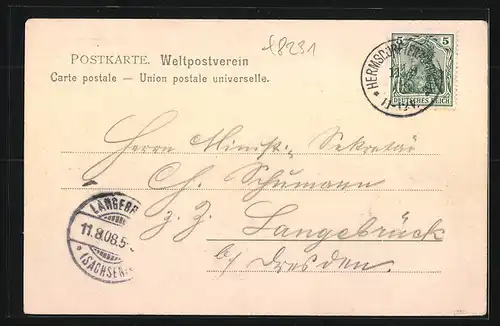 £8231
POSTKARTE. Weltpostverein
Carte postale — Union postale universelle.
5 5
DEUTSCHES REICH
Herrn Minist.- Sekretär
Ch. Schumann
z. Z. Langebrück
b/ Dresden.
11.8.08.5-
(SACHSEN)